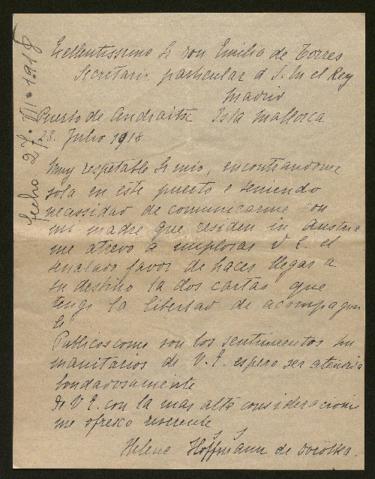 Exellentissimo Sr Don Emilio de Torres
Secretario particular d S. M el Rey
Madrid
Puerto de Andraitx Isla Mallorca
28. Julio 1918
Muy respetable Sr mio, encontrandome
sola en este puerto e teniendo
necessidad de comunicarme con
mi madre que residen in Austria
me atrevo a implorar V. E. el
senalado favor de haces llegar a
su destino la dos cartas que
tengo la libertad de acompagnar
le
Publicos como son los sentimentos hu
manitarios de V. E. espero ser atendida
bondadosamente
De V E. con la mas alta consideracion
me ofresco
Helene Hoffmann de
fecho 27. VII. 1918